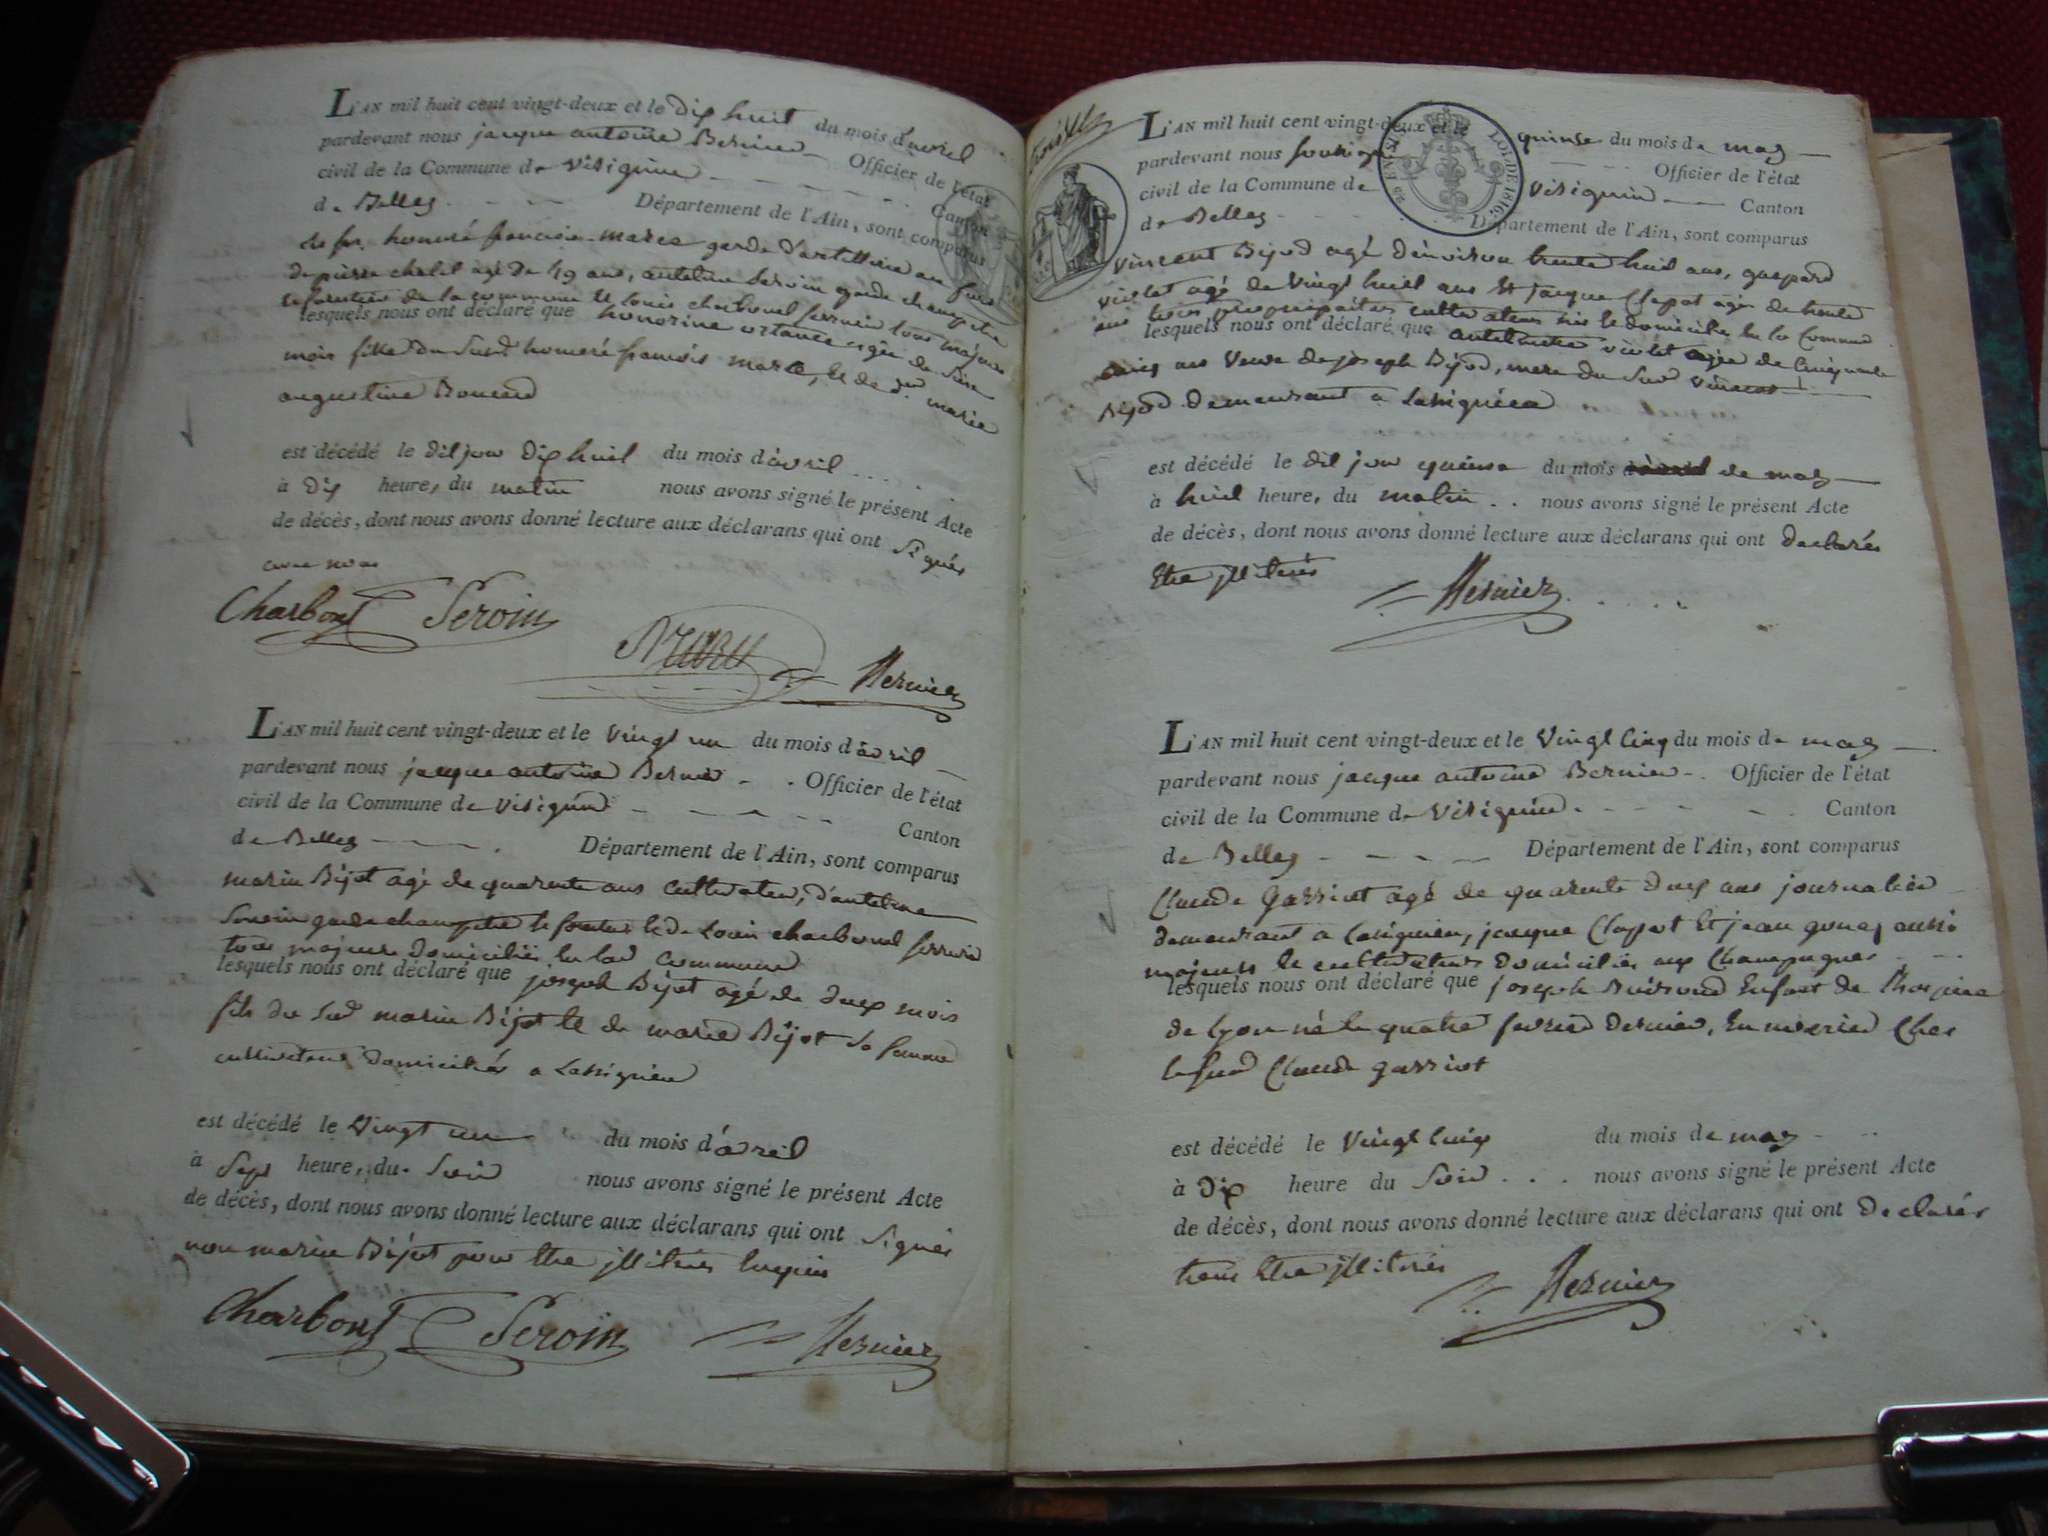 L'AN mil huit cent vingt-deux et le dix huit du mois d'avril
pardevant nous jacque antoine Bernier Officier de l'état
civil de la Commune de Virignin Canton
de Belley Département de l'Ain, sont comparus
honoré francois marce garde d'artillerie au fort
de pierre chatel agé de 49 ans, antelme Seroin garde champetre
et forestier de la commune et Louis charbonel serrurier tous majeurs
lesquels nous ont déclaré que honorine ortance agée de
mois fille du Sud. honoré francois marce, et de marie
augustine
est décédé le dit jour dix huit du mois d'avril
à dix heure, du matin nous avons signé le présent Acte
de décès, dont nous avons donné lecture aux déclarans qui ont signés
avec nous
Charbonel Seroin
Bernier
L'AN mil huit cent vingt-deux et le vingt un du mois d'avril
pardevant nous jacque antoine Bernier Officier de l'état
civil de la Commune de Virignin Canton
de Belley Département de l'Ain, sont comparus
marin Bijot agé de quarente ans cultivateur, d'antelme
Seroin garde champetre et forestier et de Louis charbonel serrurier
tous majeurs domiciliés en lad commune
lesquels nous ont déclaré que joseph Bijot agé de deux mois
fils du Sud marin Bijot et de marie Bijot sa femme
cultivateurs domiciliés a Lassignieu
est décédé le vingt un du mois d'avril
à Sept heure, du Soir nous avons signé le présent Acte
de décès, dont nous avons donné lecture aux déclarans qui ont signés
non marin Bijot pour etre illiteré
Charbonel Seroin Bernier
L'AN mil huit cent vingt-deux et le quinse du mois de may
pardevant nous Officier de l'état
civil de la Commune de Virignin Canton
de Belley Département de l'Ain, sont comparus
LOI DE 1816.
vincent Bijod agé d'environ trente huit ans, gaspard
violet agé de vingt huit ans et jacque Clapot agé de trente
ans tous propriaitaires cultivateurs domiciliés en la Commune
lesquels nous ont déclaré que violet agée de Cinquante
cinq ans veuve de joseph Bijod, mere du Sud vincent
Bijod demeurant a Lassignieu
est décédé le dit jour quinse du mois de may
à huit heure, du matin nous avons signé le présent Acte
de décès, dont nous avons donné lecture aux déclarans qui ont declarés
Etre illiterés
Bernier
L'AN mil huit cent vingt-deux et le vingt cinq du mois de may
pardevant nous jacque antoine Bernier Officier de l'état
civil de la Commune de Virignin Canton
de Belley Département de l'Ain, sont comparus
Claude garriot agé de quarente deux ans journalier
demeurant a Lassignieu, jacque Clapot Et jean aussi
majeurs et cultivateurs domiciliés
lesquels nous ont déclaré que joseph Enfant de l'hospice
de Lyon né le quatre fevrier dernier, En nourice Chez
le sud Claude garriot
est décédé le vingt cinq du mois de may
à dix heure du Soir nous avons signé le présent Acte
de décès, dont nous avons donné lecture aux déclarans qui ont declarés
tous Etre illiterés
Bernier